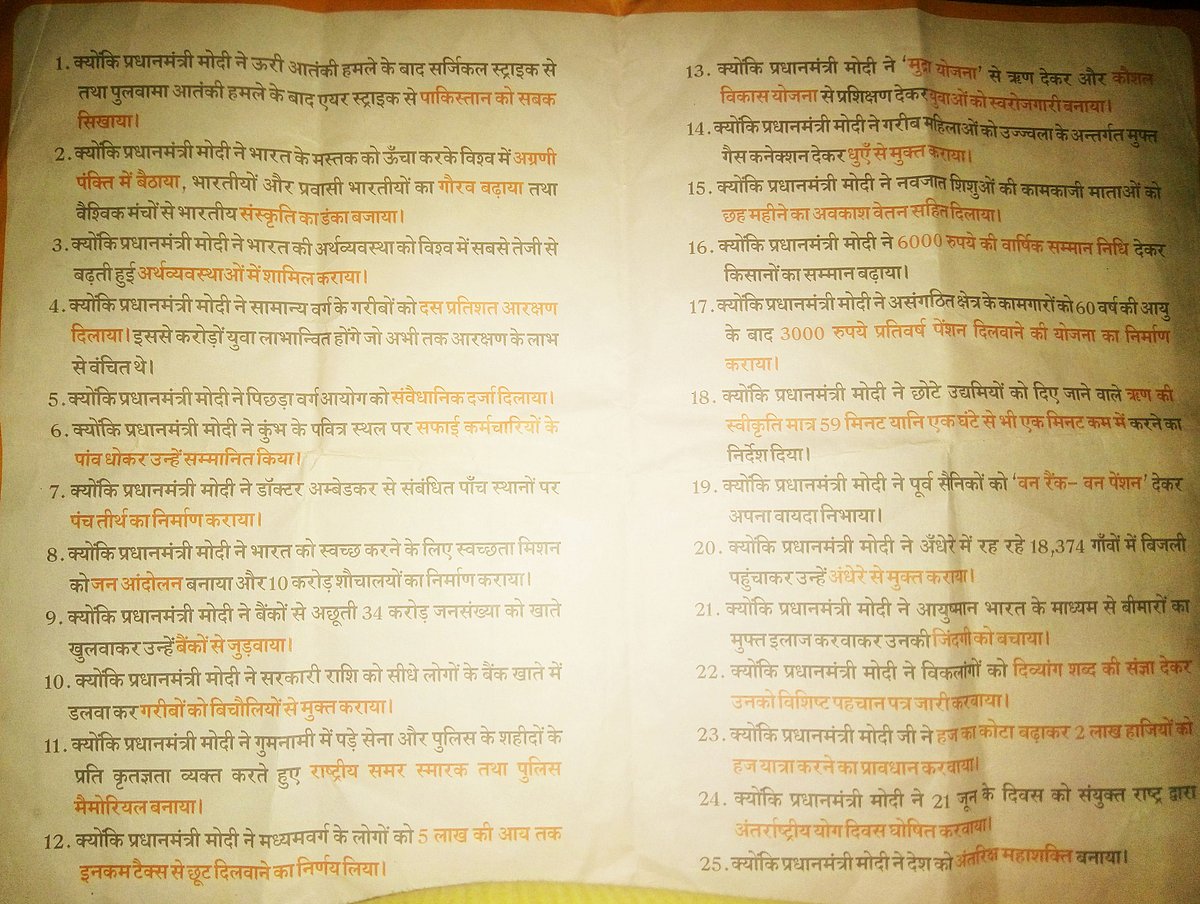 1. क्योंकि प्रधानमंत्री मोदी ने ऊरी आतंकी हमले के बाद सर्जिकल स्ट्राइक से
तथा पुलवामा आतंकी हमले के बाद एयर स्ट्राइक से पाकिस्तान को सबक
सिखाया।
2. क्योंकि प्रधानमंत्री मोदी ने भारत के मस्तक को ऊँचा करके विश्व में अग्रणी
पंक्ति में बैठाया, भारतीयों और प्रवासी भारतीयों का गौरव बढ़ाया तथा
वैश्विक मंचों से भारतीय संस्कृति का डंका बजाया।
3. क्योंकि प्रधानमंत्री मोदी ने भारत की अर्थव्यवस्था को विश्व में सबसे तेजी से
बढ़ती हुई अर्थव्यवस्थाओं में शामिल कराया।
4. क्योंकि प्रधानमंत्री मोदी ने सामान्य वर्ग के गरीबों को दस प्रतिशत आरक्षण
दिलाया। इससे करोड़ों युवा लाभान्वित होंगे जो अभी तक आरक्षण के लाभ
से वंचित थे।
5. क्योंकि प्रधानमंत्री मोदी ने पिछड़ा वर्ग आयोग को संवैधानिक दर्जा दिलाया।
6. क्योंकि प्रधानमंत्री मोदी ने कुंभ के पवित्र स्थल पर सफाई कर्मचारियों के
पांव धोकर उन्हें सम्मानित किया।
7. क्योंकि प्रधानमंत्री मोदी ने डॉक्टर अम्बेडकर से संबंधित पाँच स्थानों पर
पंच तीर्थ का निर्माण कराया।
8. क्योंकि प्रधानमंत्री मोदी ने भारत को स्वच्छ करने के लिए स्वच्छता मिशन
को जन आंदोलन बनाया और 10 करोड़ शौचालयों का निर्माण कराया।
9. क्योंकि प्रधानमंत्री मोदी ने बैंकों से अछूती 34 करोड़ जनसंख्या को खाते
खुलवाकर उन्हें बैंकों से जुड़वाया।
10. क्योंकि प्रधानमंत्री मोदी ने सरकारी राशि को सीधे लोगों के बैंक खाते में
डलवा कर गरीबों को बिचौलियों से मुक्त कराया।
11. क्योंकि प्रधानमंत्री मोदी ने गुमनामी में पड़े सेना और पुलिस के शहीदों के
प्रति कृतज्ञता व्यक्त करते हुए राष्ट्रीय समर स्मारक तथा पुलिस
मैमोरियल बनाया।
12. क्योंकि प्रधानमंत्री मोदी ने मध्यमवर्ग के लोगों को 5 लाख की आय तक
इनकम टैक्स से छूट दिलवाने का निर्णय लिया।
13. क्योंकि प्रधानमंत्री मोदी ने 'मुद्रा योजना' से ऋण देकर और कौशल
विकास योजना से प्रशिक्षण देकर युवाओं को स्वरोजगारी बनाया।
14. क्योंकि प्रधानमंत्री मोदी ने गरीब महिलाओं को उज्ज्वला के अन्तर्गत मुफ्त
गैस कनेक्शन देकर धुएँ से मुक्त कराया।
15. क्योंकि प्रधानमंत्री मोदी ने नवजात शिशुओं की कामकाजी माताओं को
छह महीने का अवकाश वेतन सहित दिलाया।
16. क्योंकि प्रधानमंत्री मोदी ने 6000 रुपये की वार्षिक सम्मान निधि देकर
किसानों का सम्मान बढ़ाया।
17. क्योंकि प्रधानमंत्री मोदी ने असंगठित क्षेत्र के कामगारों को 60 वर्ष की आयु
के बाद 3000 रुपये प्रतिवर्ष पेंशन दिलवाने की योजना का निर्माण
कराया।
18. क्योंकि प्रधानमंत्री मोदी ने छोटे उद्यमियों को दिए जाने वाले ऋण की
स्वीकृति मात्र 59 मिनट यानि एक घंटे से भी एक मिनट कम में करने का
निर्देश दिया।
19. क्योंकि प्रधानमंत्री मोदी ने पूर्व सैनिकों को 'वन रैंक- वन पेंशन' देकर
अपना वायदा निभाया।
20. क्योंकि प्रधानमंत्री मोदी ने अँधेरे में रह रहे 18,374 गाँवों में बिजली
पहुंचाकर उन्हें अंधेरे से मुक्त कराया।
21. क्योंकि प्रधानमंत्री मोदी ने आयुष्मान भारत के माध्यम से बीमारों का
मुफ्त इलाज करवाकर उनकी जिंदगी को बचाया।
22. क्योंकि प्रधानमंत्री मोदी ने विकलांगों को दिव्यांग शब्द की संज्ञा देकर
उनको विशिष्ट पहचान पत्र जारी करवाया।
23. क्योंकि प्रधानमंत्री मोदी जी ने हज का कोटा बढ़ाकर 2 लाख हाजियों को
हज यात्रा करने का प्रावधान करवाया।
24. क्योंकि प्रधानमंत्री मोदी ने 21 जून के दिवस को संयुक्त राष्ट्र द्वारा
अंतर्राष्ट्रीय योग दिवस घोषित करवाया।
25. क्योंकि प्रधानमंत्री मोदी ने देश को अंतरिक्ष महाशक्ति बनाया।